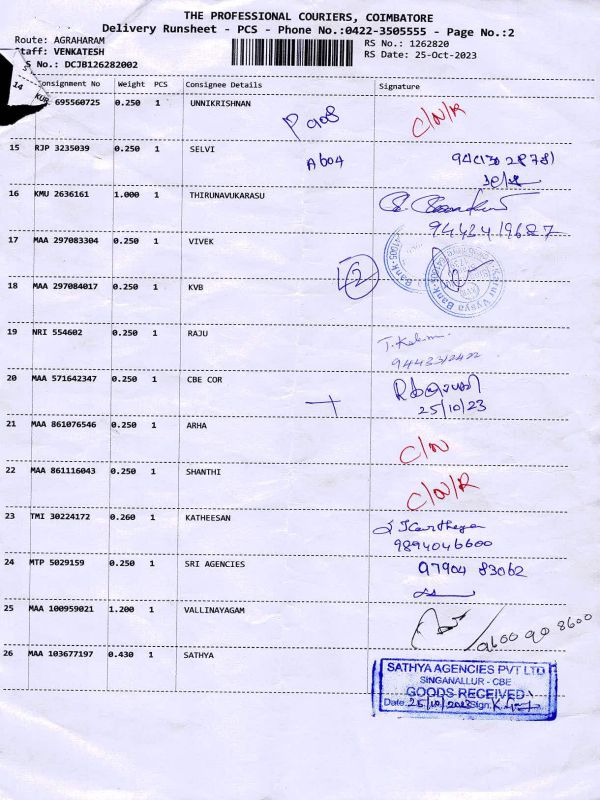 THE PROFESSIONAL COURIERS, COIMBATORE
Delivery Runsheet - PCS - Phone No.:0422-3505555 - Page No.:2
Route: AGRAHARAM RS No.: 1262820
Staff: VENKATESH RS Date: 25-Oct-2023
S No.: DCJB126282002
Consignment No Weight PCS Consignee Details Signature
14 KUR 695560725 0.250 1 UNNIKRISHNAN C/N/R
15 RJP 3235039 0.250 1 SELVI A604
16 KMU 2636161 1.000 1 THIRUNAVUKARASU
94434 19687
17 MAA 297083304 0.250 1 VIVEK
42
18 MAA 297084017 0.250 1 KVB Vysya Bank
19 NRI 554602 0.250 1 RAJU
9443312422
20 MAA 571642347 0.250 1 CBE COR
25/10/23
21 MAA 861076546 0.250 1 ARHA C/N
22 MAA 861116043 0.250 1 SHANTHI C/N/R
23 TMI 30224172 0.260 1 KATHEESAN
9894046600
24 MTP 5029159 0.250 1 SRI AGENCIES 97904 83062
25 MAA 100959021 1.200 1 VALLINAYAGAM 9600 90 8600
26 MAA 103677197 0.430 1 SATHYA
SATHYA AGENCIES PVT LTD
SINGANALLUR - CBE
GOODS RECEIVED
Date: 25/10/2023 Sign.